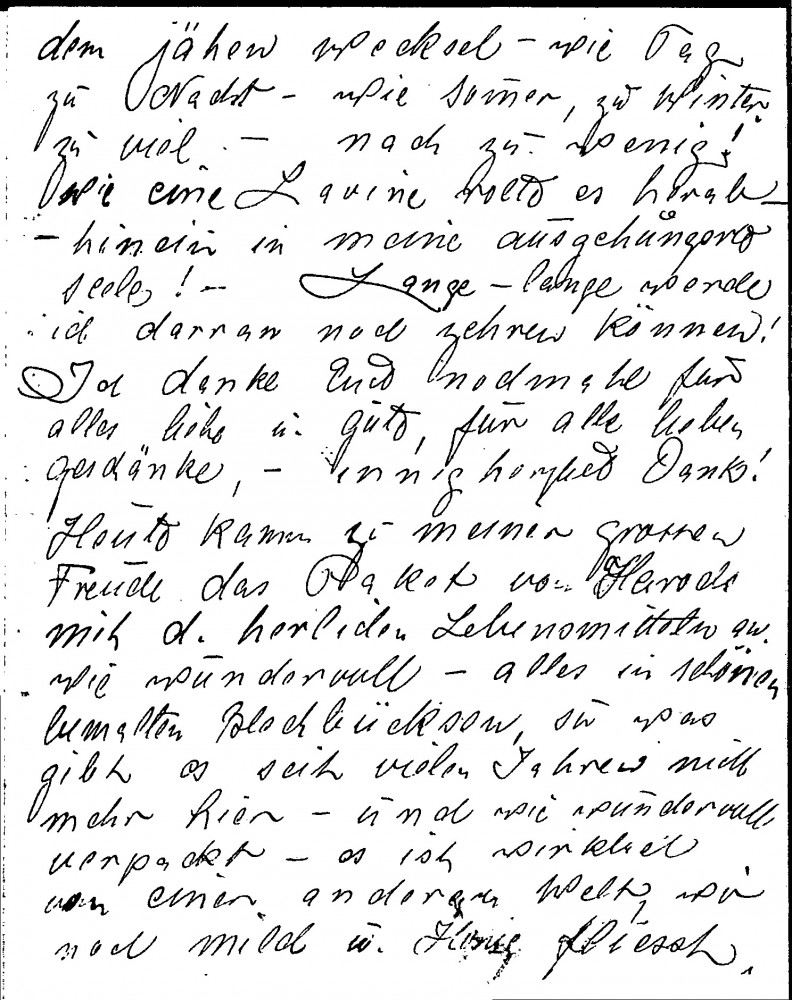 dem jähen Wecksel - wie Tag
zu Nacht - wie Somer, zu Winter
zu viel - nach zu wenig!
Wie eine Lavine rollt es herab -
- hinein in meine ausgehüngerte
Seele! - Lange - lange werde
ich darran noch zehren können!
Ich danke Euch nochmahl für
alles liebe u. gute, für alle lieben
gedänke, - innig herzlich Dank!
Heute kamm zu meiner grossen
Freude das Paket von Harods
mit d. herlichen Lebensmitteln an.
wie wundervoll - alles in schönen
bemalten Blechbücksen, so was
gibt es seit vielen Jahren nicht
mehr hier - und wie wundervoll
verpackt - es ist wirklich
von einer anderen Welt, wo
noch Milch u. Honig fliesst.